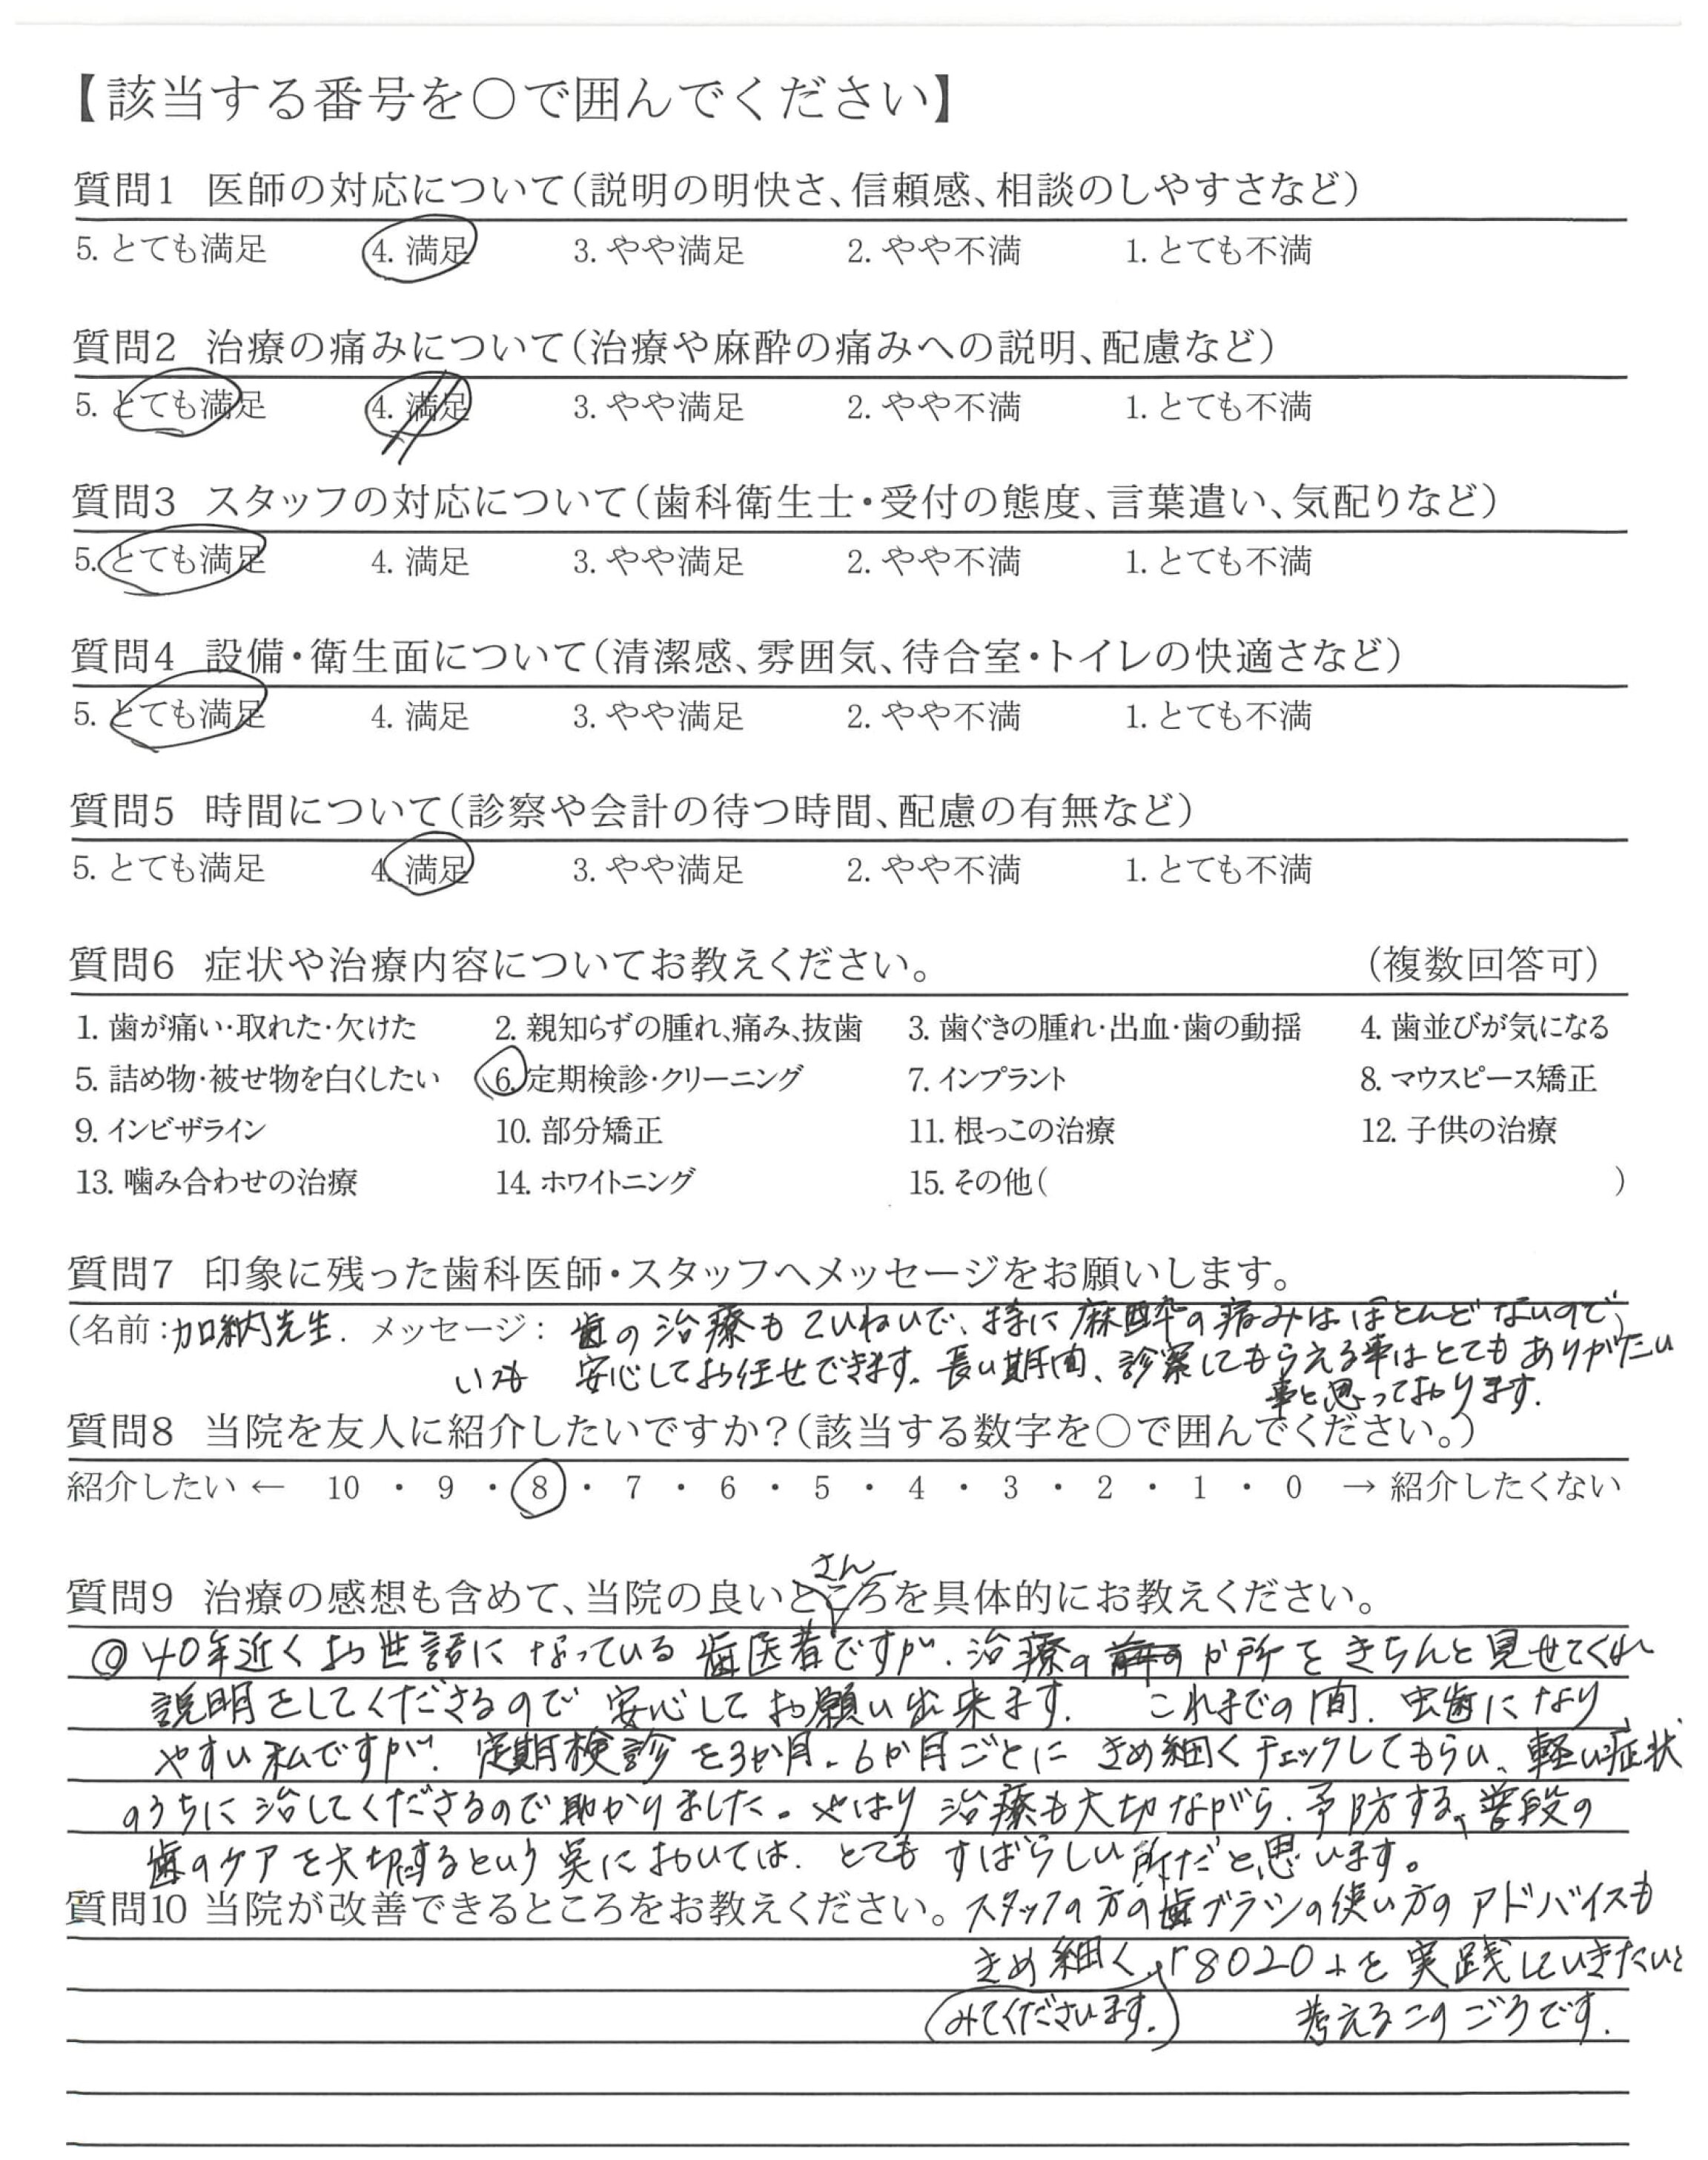 【該当する番号を○で囲んでください】
質問1 医師の対応について(説明の明快さ、信頼感、相談のしやすさなど)
5. とても満足 4. 満足 3. やや満足 2. やや不満 1. とても不満
質問2 治療の痛みについて(治療や麻酔の痛みへの説明、配慮など)
5. とても満足 4. 満足 3. やや満足 2. やや不満 1. とても不満
質問3 スタッフの対応について(歯科衛生士・受付の態度、言葉遣い、気配りなど)
5. とても満足 4. 満足 3. やや満足 2. やや不満 1. とても不満
質問4 設備・衛生面について(清潔感、雰囲気、待合室・トイレの快適さなど)
5. とても満足 4. 満足 3. やや満足 2. やや不満 1. とても不満
質問5 時間について(診察や会計の待つ時間、配慮の有無など)
5. とても満足 4. 満足 3. やや満足 2. やや不満 1. とても不満
質問6 症状や治療内容についてお教えください。 (複数回答可)
1. 歯が痛い・取れた・欠けた 2. 親知らずの腫れ、痛み、抜歯 3. 歯ぐきの腫れ・出血・歯の動揺 4. 歯並びが気になる
5. 詰め物・被せ物を白くしたい 6. 定期検診・クリーニング 7. インプラント 8. マウスピース矯正
9. インビザライン 10. 部分矯正 11. 根っこの治療 12. 子供の治療
13. 噛み合わせの治療 14. ホワイトニング 15. その他( )
質問7 印象に残った歯科医師・スタッフへメッセージをお願いします。
(名前:加納先生. メッセージ: 歯の治療もていねいで、特に麻酔の痛みはほとんどないので)
いつも 安心してお任せできます。長い期間、診察してもらえる事はとてもありがたい
事と思っております.
質問8 当院を友人に紹介したいですか?(該当する数字を○で囲んでください。)
紹介したい ← 10 ・ 9 ・ 8 ・ 7 ・ 6 ・ 5 ・ 4 ・ 3 ・ 2 ・ 1 ・ 0 → 紹介したくない
さん
質問9 治療の感想も含めて、当院の良いところを具体的にお教えください。
◎40年近くお世話になっている歯医者ですが、治療のか所をきちんと見せてくれ
説明をしてくださるので安心してお願い出来ます. これまでの間、虫歯になり
やすい私ですが、定期検診を3か月、6か月ごとにきめ細くチェックしてもらい、軽い症状
のうちに治してくださるので助かりました。やはり治療も大切ながら、予防する、普段の
歯のケアを大切するという点においては、とてもすばらしい所だと思います。
質問10 当院が改善できるところをお教えください。スタッフの方の歯ブラシの使い方のアドバイスも
きめ細く、「8020」を実践していきたいと
(みてくださいます.) 考えるこのごろです.